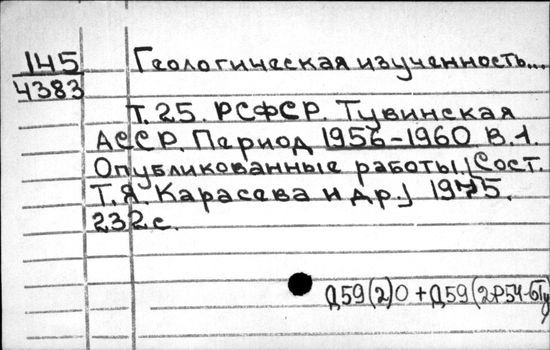 145
4383
Геологическая изученность...
Т. 25. РСФСР. Тувинская
АССР. Период 1956-1960 В.1.
Опубликованные работы. [Сост.
Т.Я. Карасева и др.] 1975.
232 с.
Д59(2)0 + Д59(2Р54-6Ту